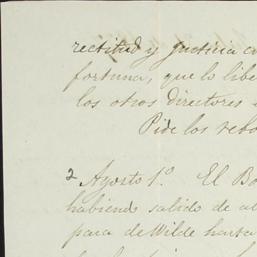 rectitud y justicia co
fortuna, que lo libe
los otros directores
Pide los rebo
2 Agosto 1.º El Ba
habiendo salido de al
para de Wilde hasta